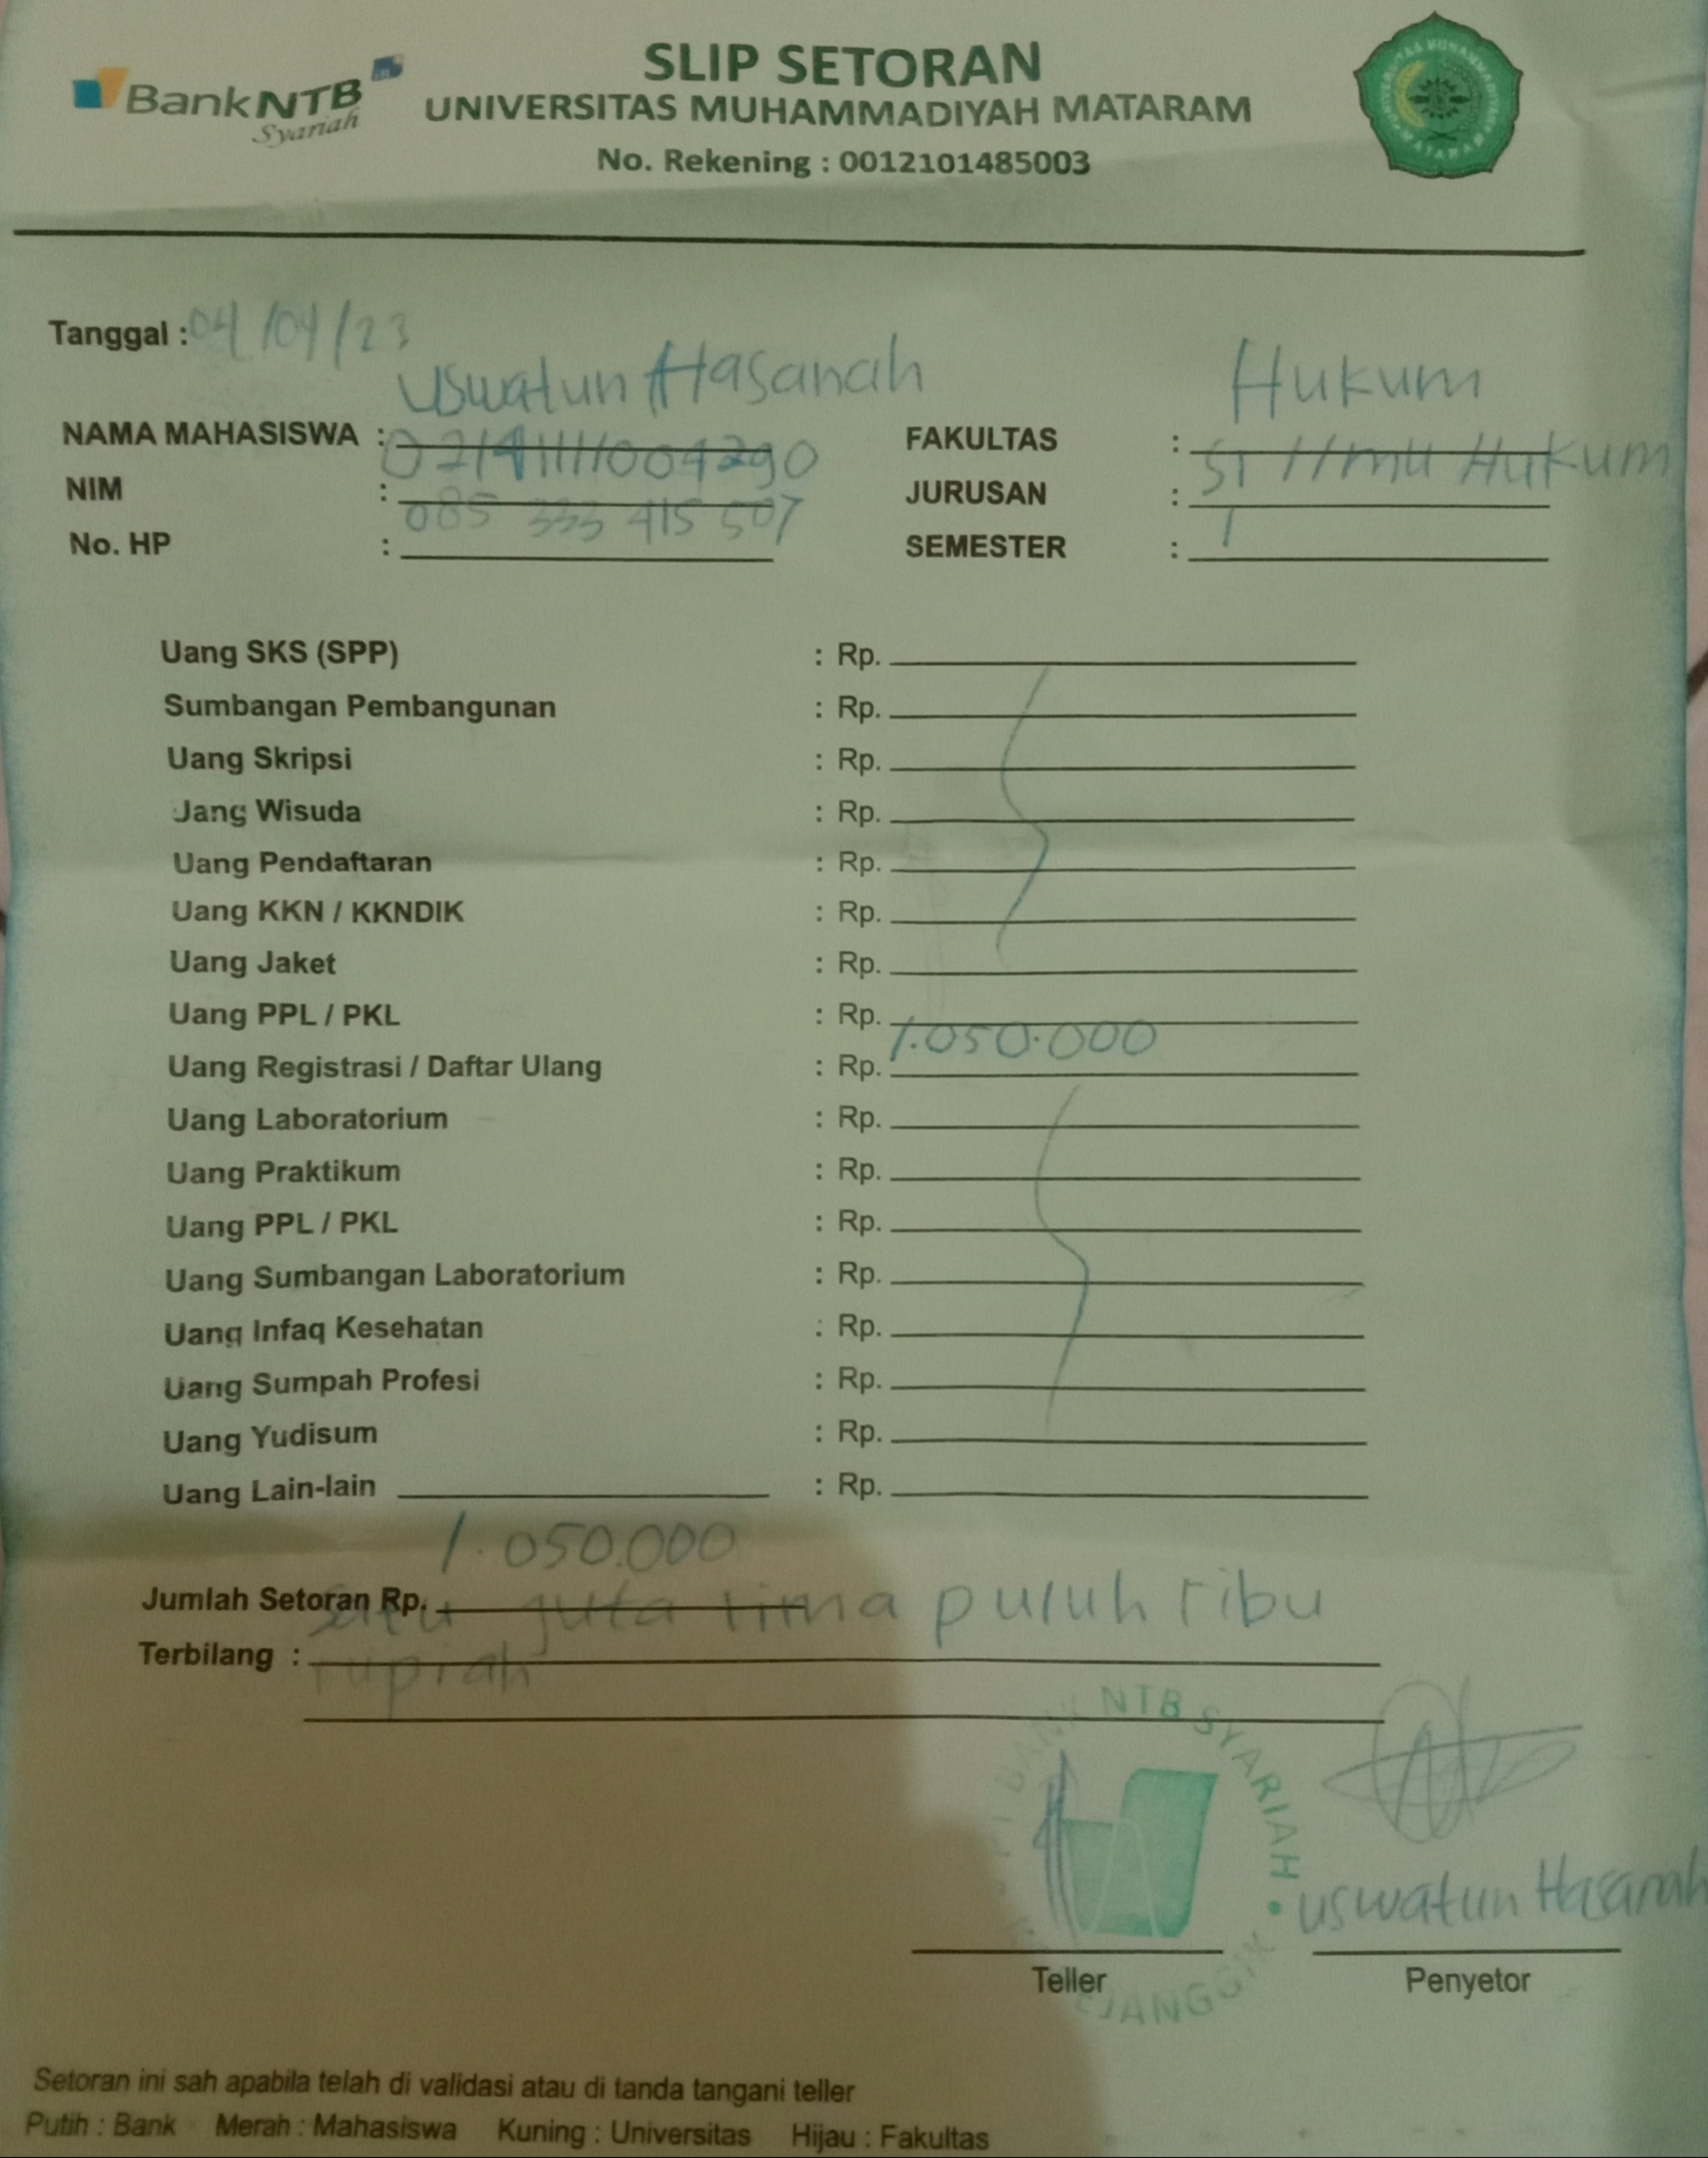 BankNTB
Syariah
SLIP SETORAN
UNIVERSITAS MUHAMMADIYAH MATARAM
No. Rekening : 0012101485003
Tanggal : 04/04/23
NAMA MAHASISWA : Uswatun Hasanah
FAKULTAS : Hukum
NIM :
JURUSAN : S1 Ilmu Hukum
No. HP : 085 333 415 507
SEMESTER : 1
Uang SKS (SPP) : Rp.
Sumbangan Pembangunan : Rp.
Uang Skripsi : Rp.
Uang Wisuda : Rp.
Uang Pendaftaran : Rp.
Uang KKN / KKNDIK : Rp.
Uang Jaket : Rp.
Uang PPL / PKL : Rp.
Uang Registrasi / Daftar Ulang : Rp. 1.050.000
Uang Laboratorium : Rp.
Uang Praktikum : Rp.
Uang PPL / PKL : Rp.
Uang Sumbangan Laboratorium : Rp.
Uang Infaq Kesehatan : Rp.
Uang Sumpah Profesi : Rp.
Uang Yudisum : Rp.
Uang Lain-lain : Rp.
Jumlah Setoran Rp. 1.050.000
Terbilang : Satu juta lima puluh ribu
rupiah
BANK NTB SYARIAH
Uswatun Hasanah
Teller
Penyetor
Setoran ini sah apabila telah di validasi atau di tanda tangani teller
Putih : Bank Merah : Mahasiswa Kuning : Universitas Hijau : Fakultas